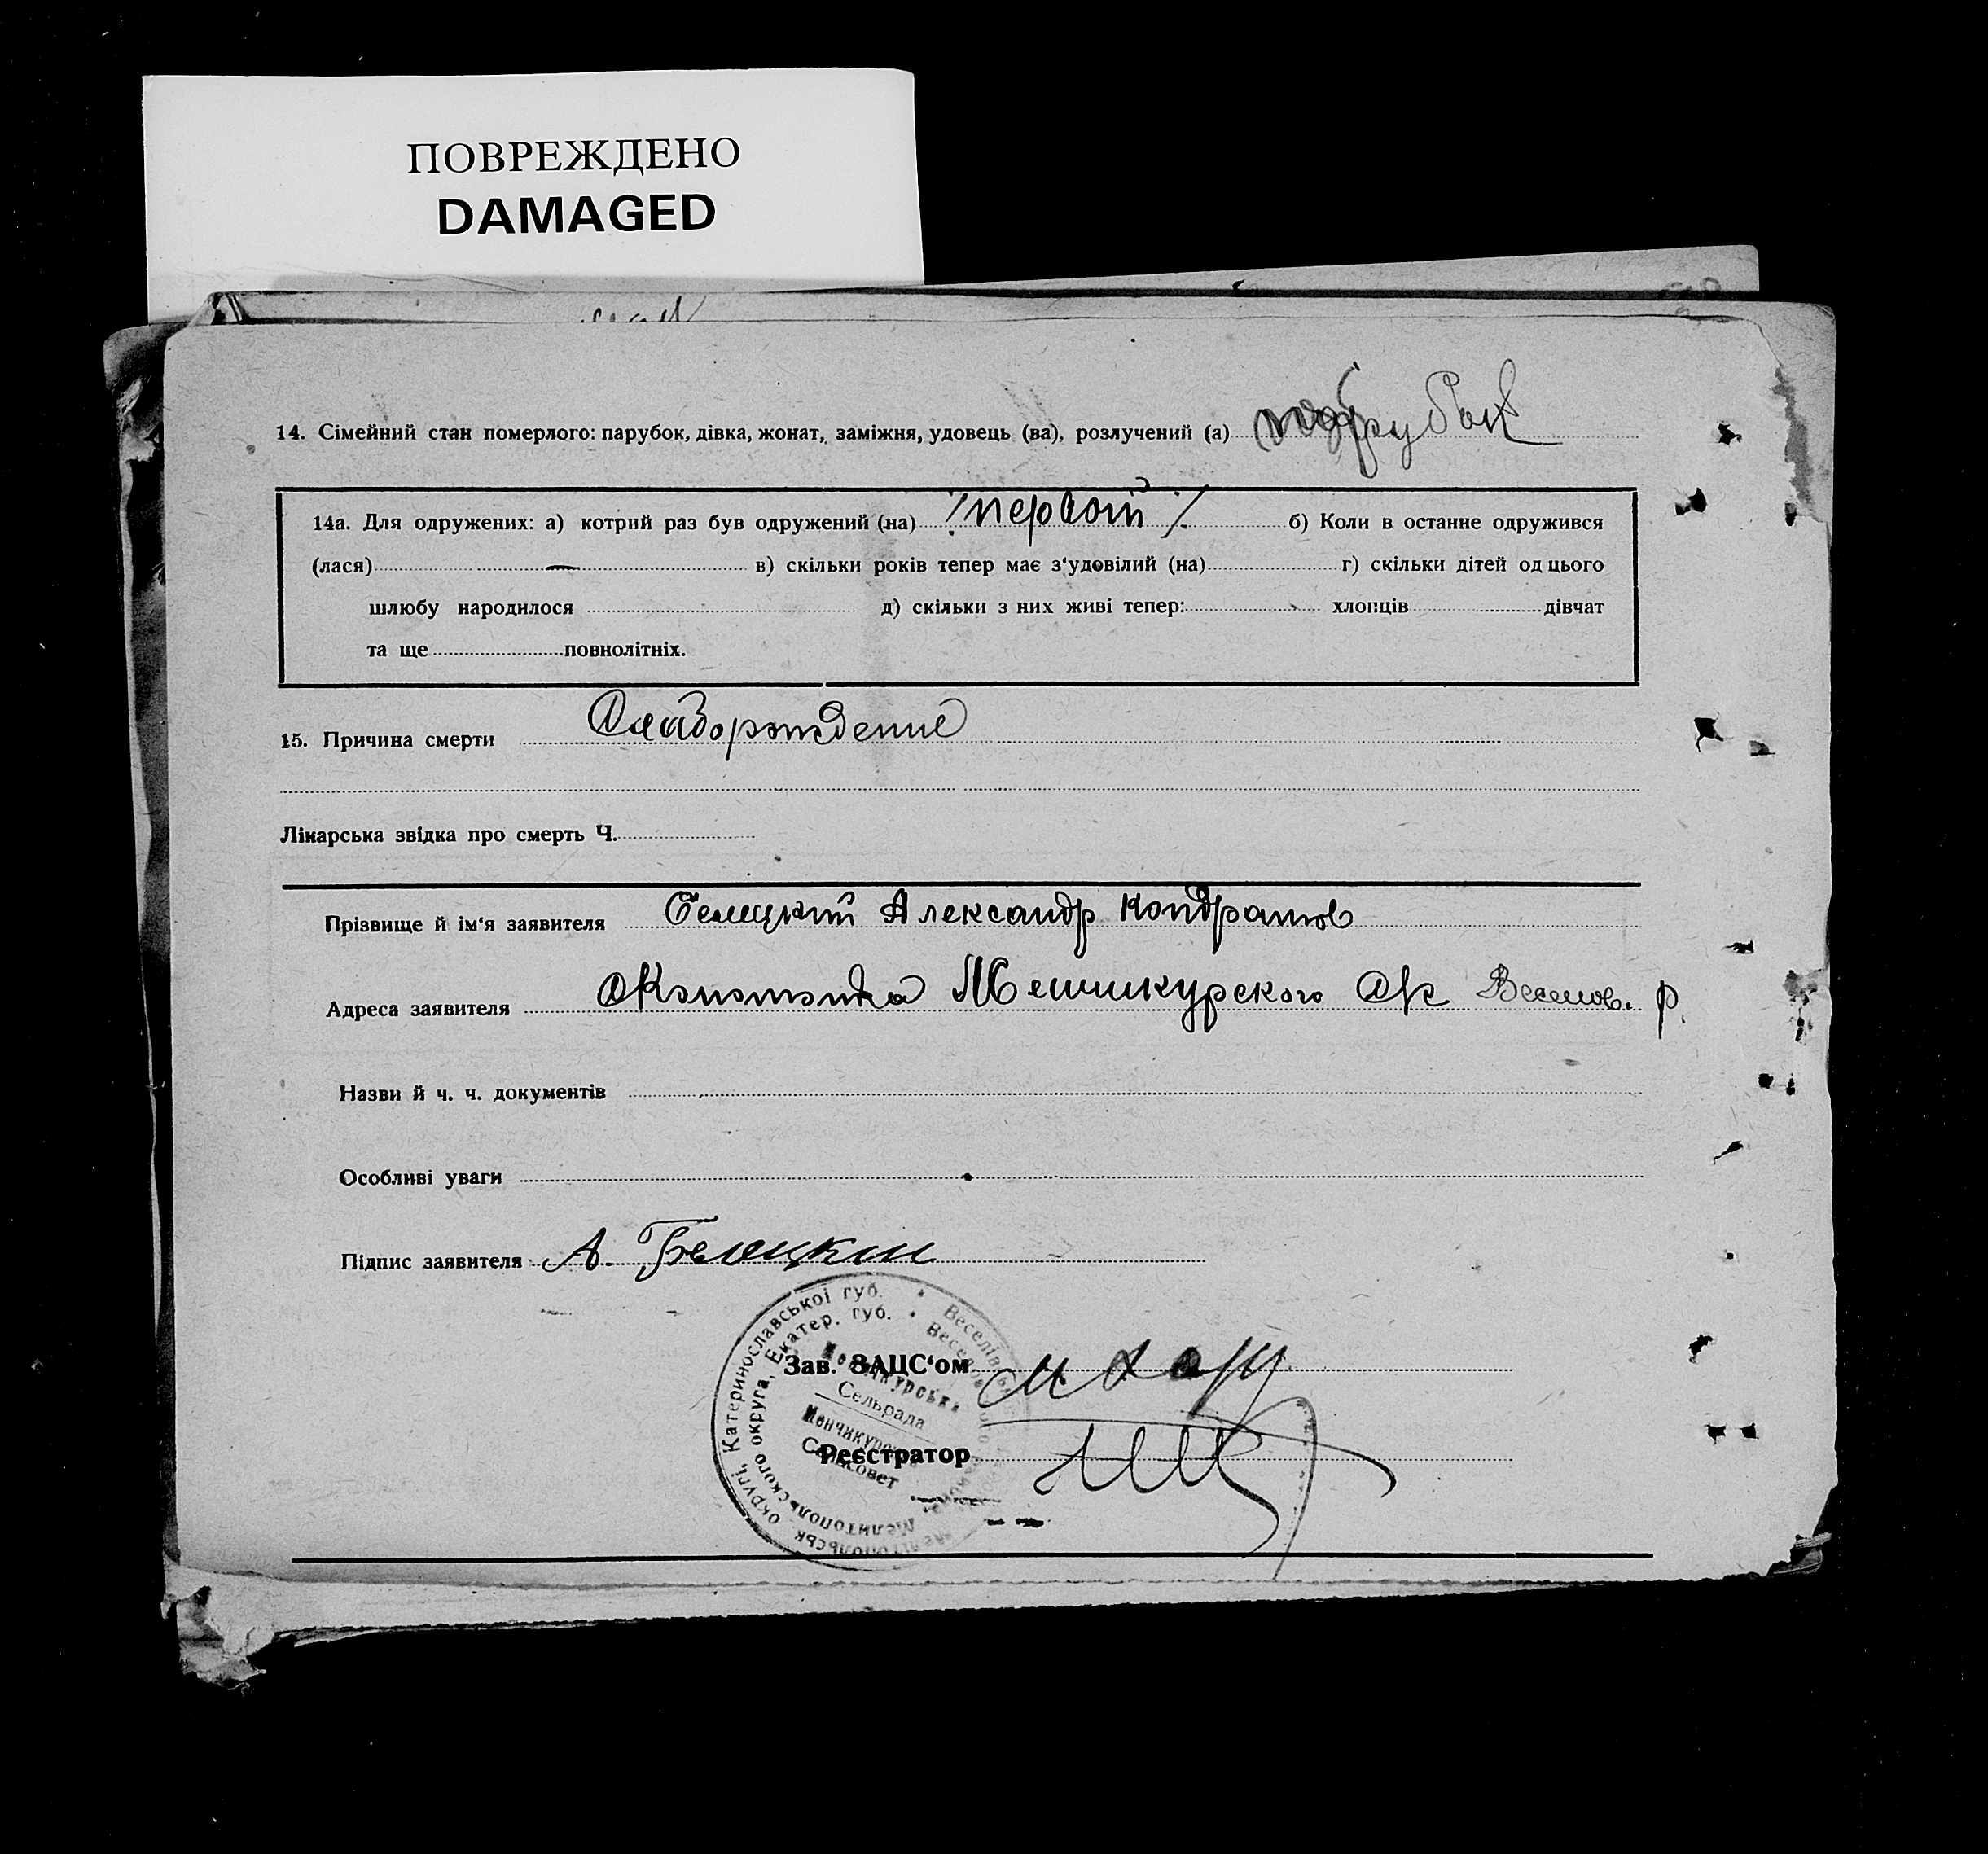 ПОВРЕЖДЕНО
DAMAGED
14. Сімейний стан померлого: парубок, дівка, жонат, заміжня, удовець (ва), розлучений (а) парубок
14а. Для одружених: а) котрий раз був одружений (на) первой б) Коли в останне одружився
(лася) — в) скільки років тепер має з‘удовілий (на) г) скільки дітей од цього
шлюбу народилося д) скільки з них живі тепер: хлопців дівчат
та ще повнолітніх.
15. Причина смерти Слаборождение
Лікарська звідка про смерть Ч.
Прізвище й ім‘я заявителя Белецкий Александр Кондратов
Адреса заявителя Менчикурского Веселов. р.
Назви й ч. ч. документів
Особливі уваги
Підпис заявителя А. Белецкий
Катеринославської губ.
округа, Екатер. губ.
Зав. ЗАЦС‘ом
Сельрада
Менчикурс
Реєстратор
Сельсовет
Мелитопольского